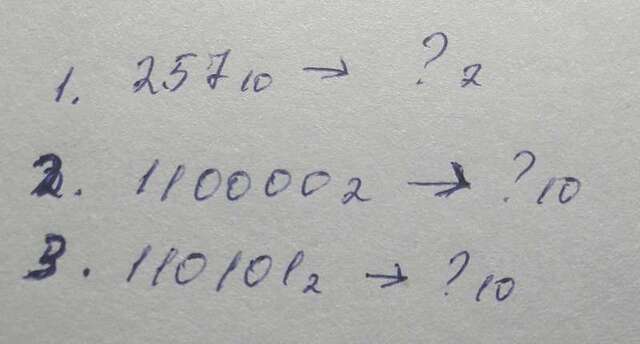 1. 257₁₀ → ?₂
2. 1100000₂ → ?₁₀
3. 110101₂ → ?₁₀